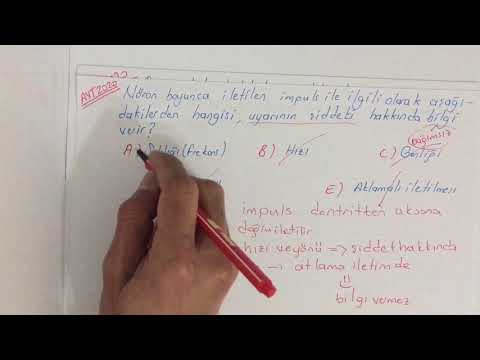 AYT 2020
Nöron boyunca iletilen impuls ile ilgili olarak aşağı-
dakilerden hangisi, uyarının şiddeti hakkında bilgi
verir?
bağımsız
A) Sıklığı (frekans) B) Hızı C) Genliği
E) Atlamalı iletilmesi
impuls dentritten aksona
doğru iletilir
hızı ve yönü => şiddet hakkında
atlama iletimde
bilgi vermez